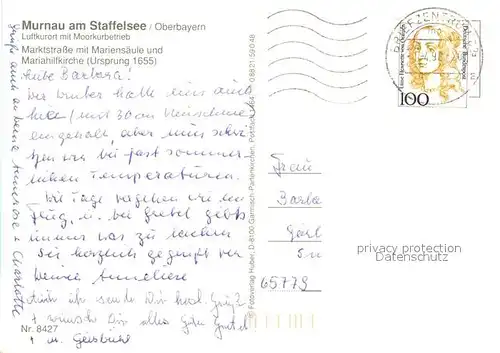 Murnau am Staffelsee / Oberbayern
Luftkurort mit Moorkurbetrieb
Marktstraße mit Mariensäule und
Mariahilfkirche (Ursprung 1655)
Liebe Barbara!
Der Winter hatte uns auch
hier mit 30 cm Neuschnee
eingehüllt, aber nun
wir bei fast sommer-
lichen Temperaturen.
Die Tage vergehen wie im
Flug, u. bei Gretel gibts
immer was zu lachen
Sei herzlich gegrüßt von
Deiner Anneliese
Auch ich sende Dir herzl. Grüße
+ wünsche Dir alles Gute Gretel
+ u.
Nr. 8427
Grüße auch an Deine Annerose + Charlotte
© Fotoverlag Huber, D-8100 Garmisch-Partenkirchen, Postfach
BRIEFZENTRUM
Deutsche Bundespost
100
Frau
Barba
65779
privacy protection
Datenschutz